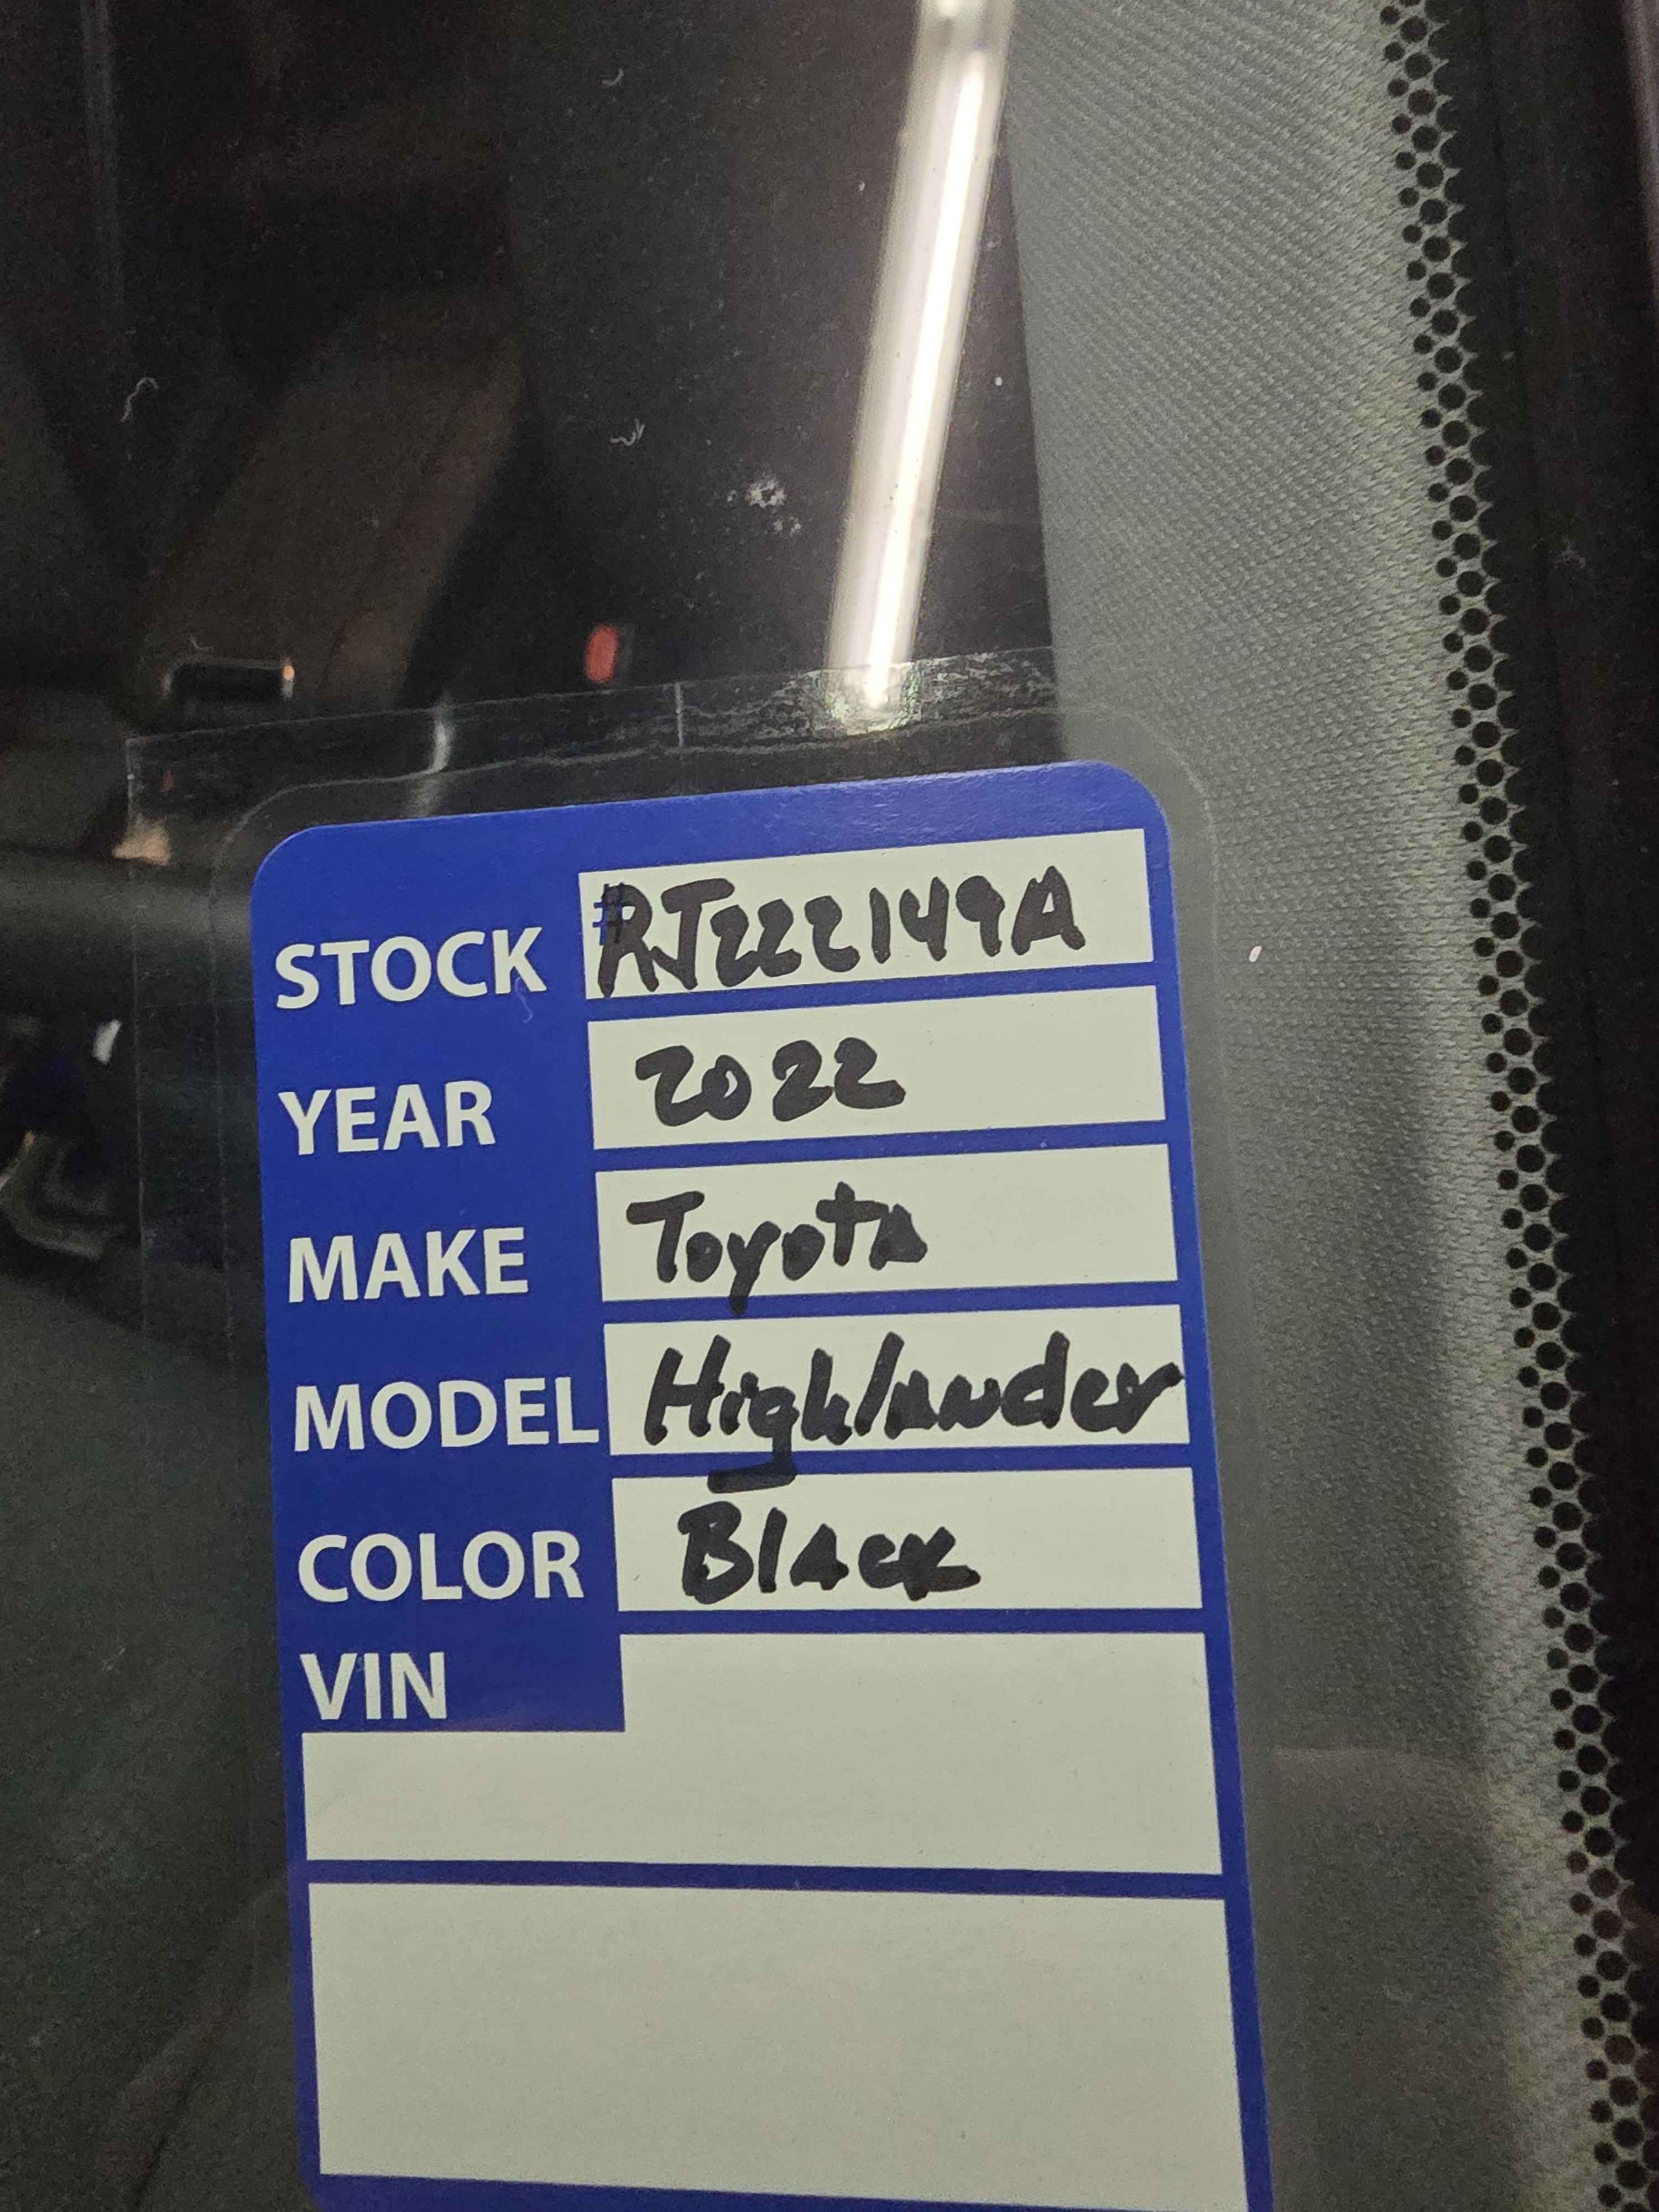 STOCK #RJ222149A
YEAR 2022
MAKE Toyota
MODEL Highlander
COLOR Black
VIN